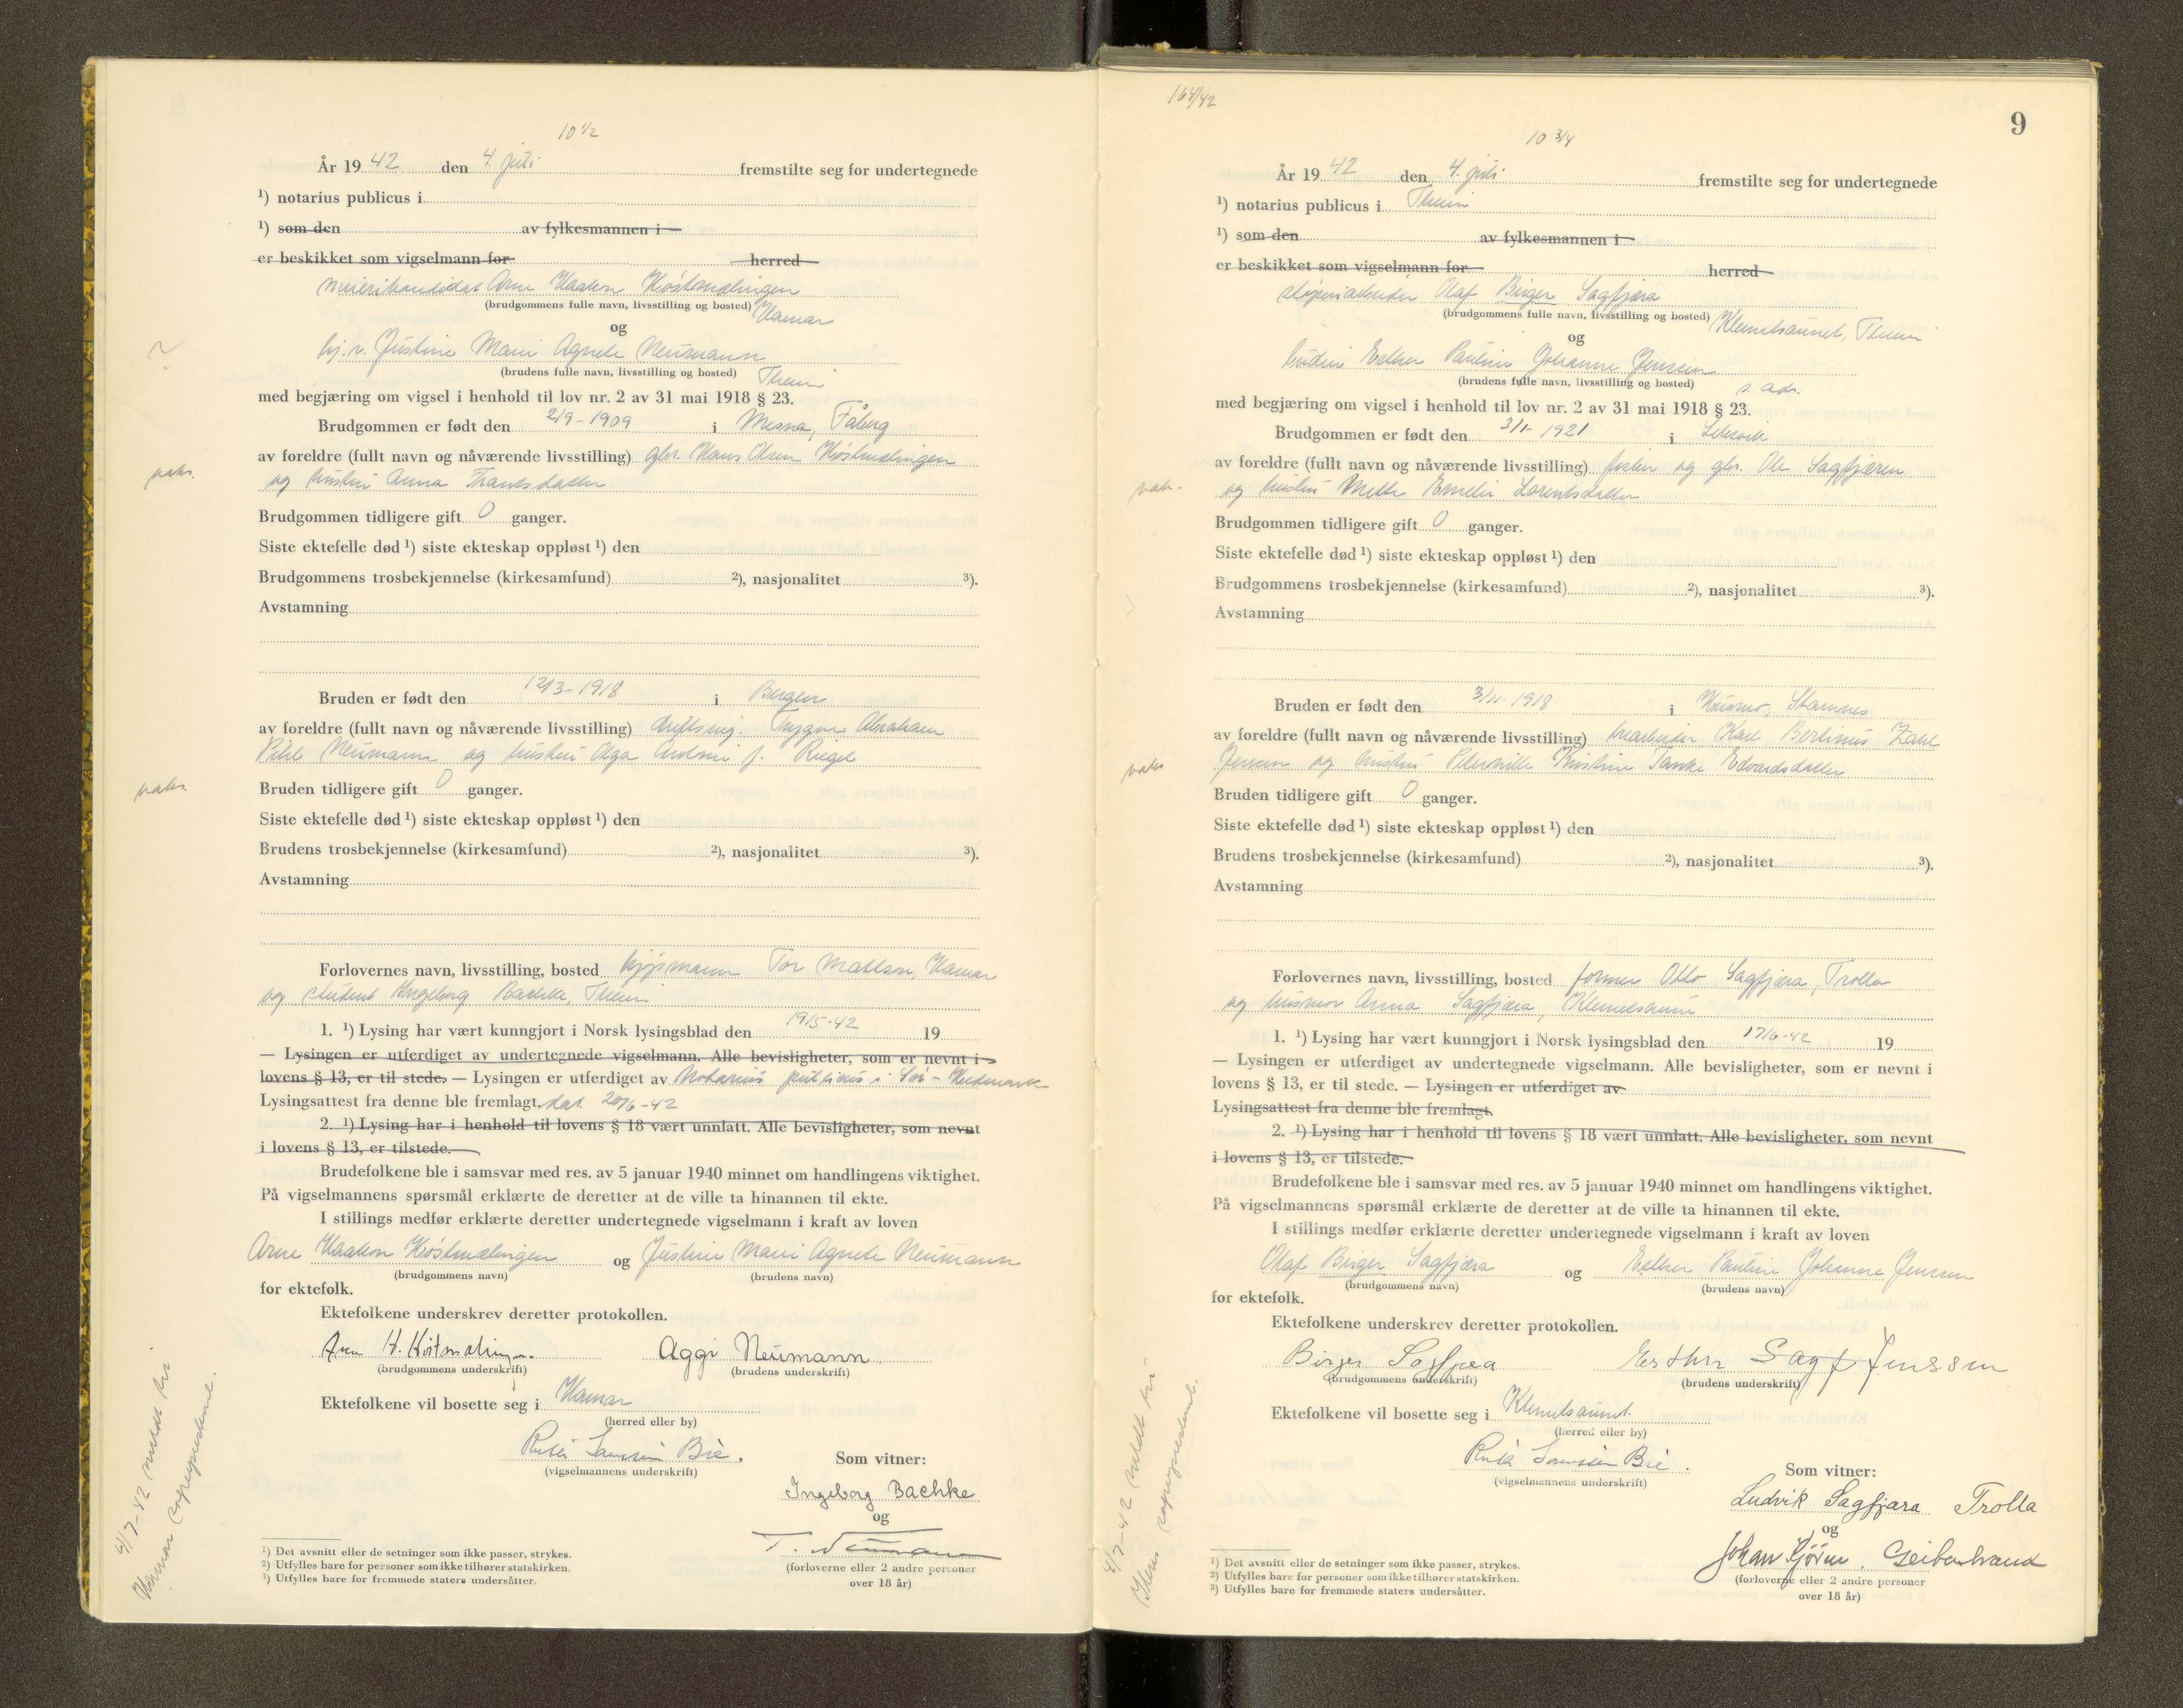 10 1/2
År 19 42 den 4. juli fremstilte seg for undertegnede
¹) notarius publicus i
¹) som den av fylkesmannen i
er beskikket som vigselmann for herred
meierikandidat Arne Haakon Kióstmælingen
(brudgommens fulle navn, livsstilling og bosted) Hamar
og
hj.v. Justine Marie Agnete Neumann
(brudens fulle navn, livsstilling og bosted) Theim
med begjæring om vigsel i henhold til lov nr. 2 av 31 mai 1918 § 23.
?
Brudgommen er født den 2/9-1909 i Mesna, Fåberg
av foreldre (fullt navn og nåværende livsstilling) gbr. Hans Olsen Kióstmælingen
og hustru Anna Frantsdatter
vaks.
Brudgommen tidligere gift 0 ganger.
Siste ektefelle død ¹) siste ekteskap oppløst ¹) den
Brudgommens trosbekjennelse (kirkesamfund) ²), nasjonalitet ³).
Avstamning
Bruden er født den 12/3-1918 i Bergen
av foreldre (fullt navn og nåværende livsstilling) driftsing. Trygve Abraham
Pihl Neumann og hustru Olga f. Riegel
vaks.
Bruden tidligere gift 0 ganger.
Siste ektefelle død ¹) siste ekteskap oppløst ¹) den
Brudens trosbekjennelse (kirkesamfund) ²), nasjonalitet ³).
Avstamning
Forlovernes navn, livsstilling, bosted kjøpmann Tor Mattson, Hamar
og student Ingeborg Bachke, Theim
1. ¹) Lysing har vært kunngjort i Norsk lysingsblad den 19/5-42 19
— Lysingen er utferdiget av undertegnede vigselmann. Alle bevisligheter, som er nevnt i
lovens § 13, er til stede. — Lysingen er utferdiget av Notarius publicus i Sør-Hedmark
Lysingsattest fra denne ble fremlagt, dat. 20/6-42
2. ¹) Lysing har i henhold til lovens § 18 vært unnlatt. Alle bevisligheter, som nevnt
i lovens § 13, er tilstede.
Brudefolkene ble i samsvar med res. av 5 januar 1940 minnet om handlingens viktighet.
På vigselmannens spørsmål erklærte de deretter at de ville ta hinannen til ekte.
I stillings medfør erklærte deretter undertegnede vigselmann i kraft av loven
Arne Haakon Kióstmælingen og Justine Marie Agnete Neumann
(brudgommens navn) (brudens navn)
for ektefolk.
Ektefolkene underskrev deretter protokollen.
Arne H. Kióstmælingen Aggi Neumann
(brudgommens underskrift) (brudens underskrift)
Ektefolkene vil bosette seg i Hamar
(herred eller by)
Ruth Sørenssen Bie.
(vigselmannens underskrift)
Som vitner:
Ingeborg Bachke
og
T. Neumann
(forloverne eller 2 andre personer
over 18 år)
4/7-42 meldt til
Hamar sogneprestemb.
¹) Det avsnitt eller de setninger som ikke passer, strykes.
²) Utfylles bare for personer som ikke tilhører statskirken.
³) Utfylles bare for fremmede staters undersåtter.
164/42
9
10 3/4
År 19 42 den 4. juli fremstilte seg for undertegnede
¹) notarius publicus i Theim
¹) som den av fylkesmannen i
er beskikket som vigselmann for herred
støperiarbeider Olaf Birger Sagfjæra
(brudgommens fulle navn, livsstilling og bosted) Klemetsaunet, Theim
og
Esther Pauline Johanne Jenssen
(brudens fulle navn, livsstilling og bosted) s. adr.
med begjæring om vigsel i henhold til lov nr. 2 av 31 mai 1918 § 23.
Brudgommen er født den 3/1-1921 i Leksvik
av foreldre (fullt navn og nåværende livsstilling) fisker og gbr. Ole Sagfjæren
og hustru Mette Emelie Lorentsdatter
vaks.
Brudgommen tidligere gift 0 ganger.
Siste ektefelle død ¹) siste ekteskap oppløst ¹) den
Brudgommens trosbekjennelse (kirkesamfund) ²), nasjonalitet ³).
Avstamning
Bruden er født den 3/11-1918 i Stamnes
av foreldre (fullt navn og nåværende livsstilling) Karl Bertinus Zahl
Jenssen og hustru Kristine Tanke Edvardsdatter
vaks
Bruden tidligere gift 0 ganger.
Siste ektefelle død ¹) siste ekteskap oppløst ¹) den
Brudens trosbekjennelse (kirkesamfund) ²), nasjonalitet ³).
Avstamning
Forlovernes navn, livsstilling, bosted former Otto Sagfjæra, Trolla
og husmor Anna Sagfjæra, Klemetsaune
1. ¹) Lysing har vært kunngjort i Norsk lysingsblad den 17/6-42 19
— Lysingen er utferdiget av undertegnede vigselmann. Alle bevisligheter, som er nevnt i
lovens § 13, er til stede. — Lysingen er utferdiget av
Lysingsattest fra denne ble fremlagt.
2. ¹) Lysing har i henhold til lovens § 18 vært unnlatt. Alle bevisligheter, som nevnt
i lovens § 13, er tilstede.
Brudefolkene ble i samsvar med res. av 5 januar 1940 minnet om handlingens viktighet.
På vigselmannens spørsmål erklærte de deretter at de ville ta hinannen til ekte.
I stillings medfør erklærte deretter undertegnede vigselmann i kraft av loven
Olaf Birger Sagfjæra og Esther Pauline Johanne Jenssen
(brudgommens navn) (brudens navn)
for ektefolk.
Ektefolkene underskrev deretter protokollen.
Birger Sagfjæra Esther Sagf Jenssen
(brudgommens underskrift) (brudens underskrift)
Ektefolkene vil bosette seg i Klemetsaunet.
(herred eller by)
Ruth Sørenssen Bie.
(vigselmannens underskrift)
Som vitner:
Ludvik Sagfjæra Trolla
og
Johan Kjören, Geitastrand
(forloverne eller 2 andre personer
over 18 år)
4/7-42 meldt til
Ilens sogneprestemb.
¹) Det avsnitt eller de setninger som ikke passer, strykes.
²) Utfylles bare for personer som ikke tilhører statskirken.
³) Utfylles bare for fremmede staters undersåtter.